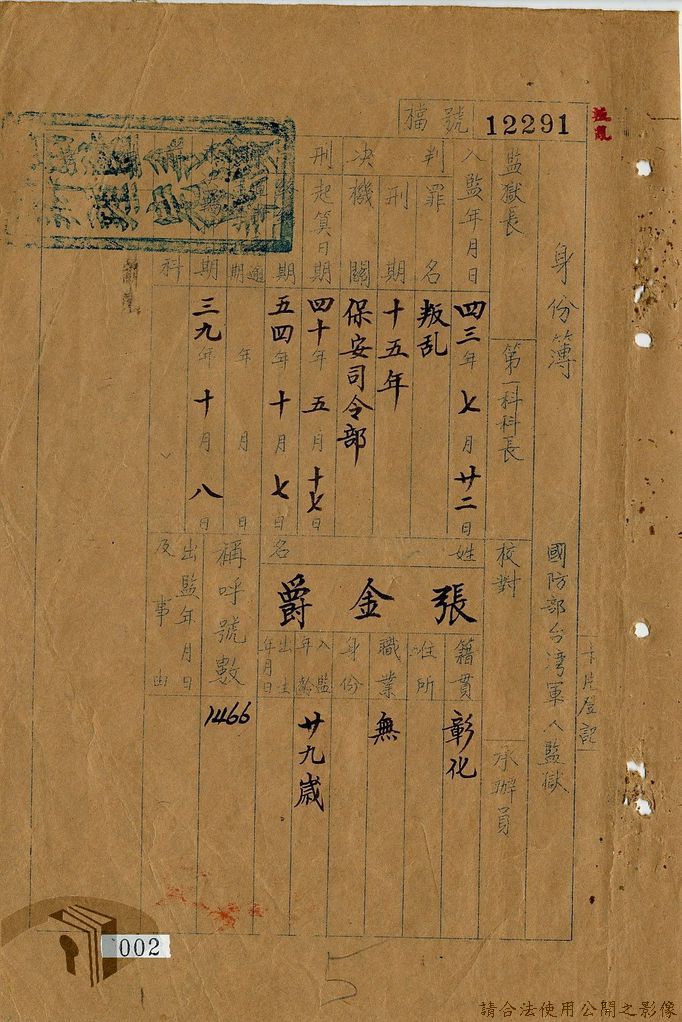 檔號 12291
身份簿 國防部台灣軍人監獄
卡片登記
監獄長 第一科科長 校對 承辦員
入監年月日 四三年七月廿二日
判罪名 叛乱
刑期 十五年
決機關 保安司令部
刑 起算日期 四十年五月十七日
期 五四年十月七日
年月日
期 三九年十月八日
科
姓名 張金爵
籍貫 彰化
住所
職業 無
身份
入監年齡 廿九歲
出生年月日
稱呼號數 1466
出監年月日及事由
5
002
請合法使用公開之影像